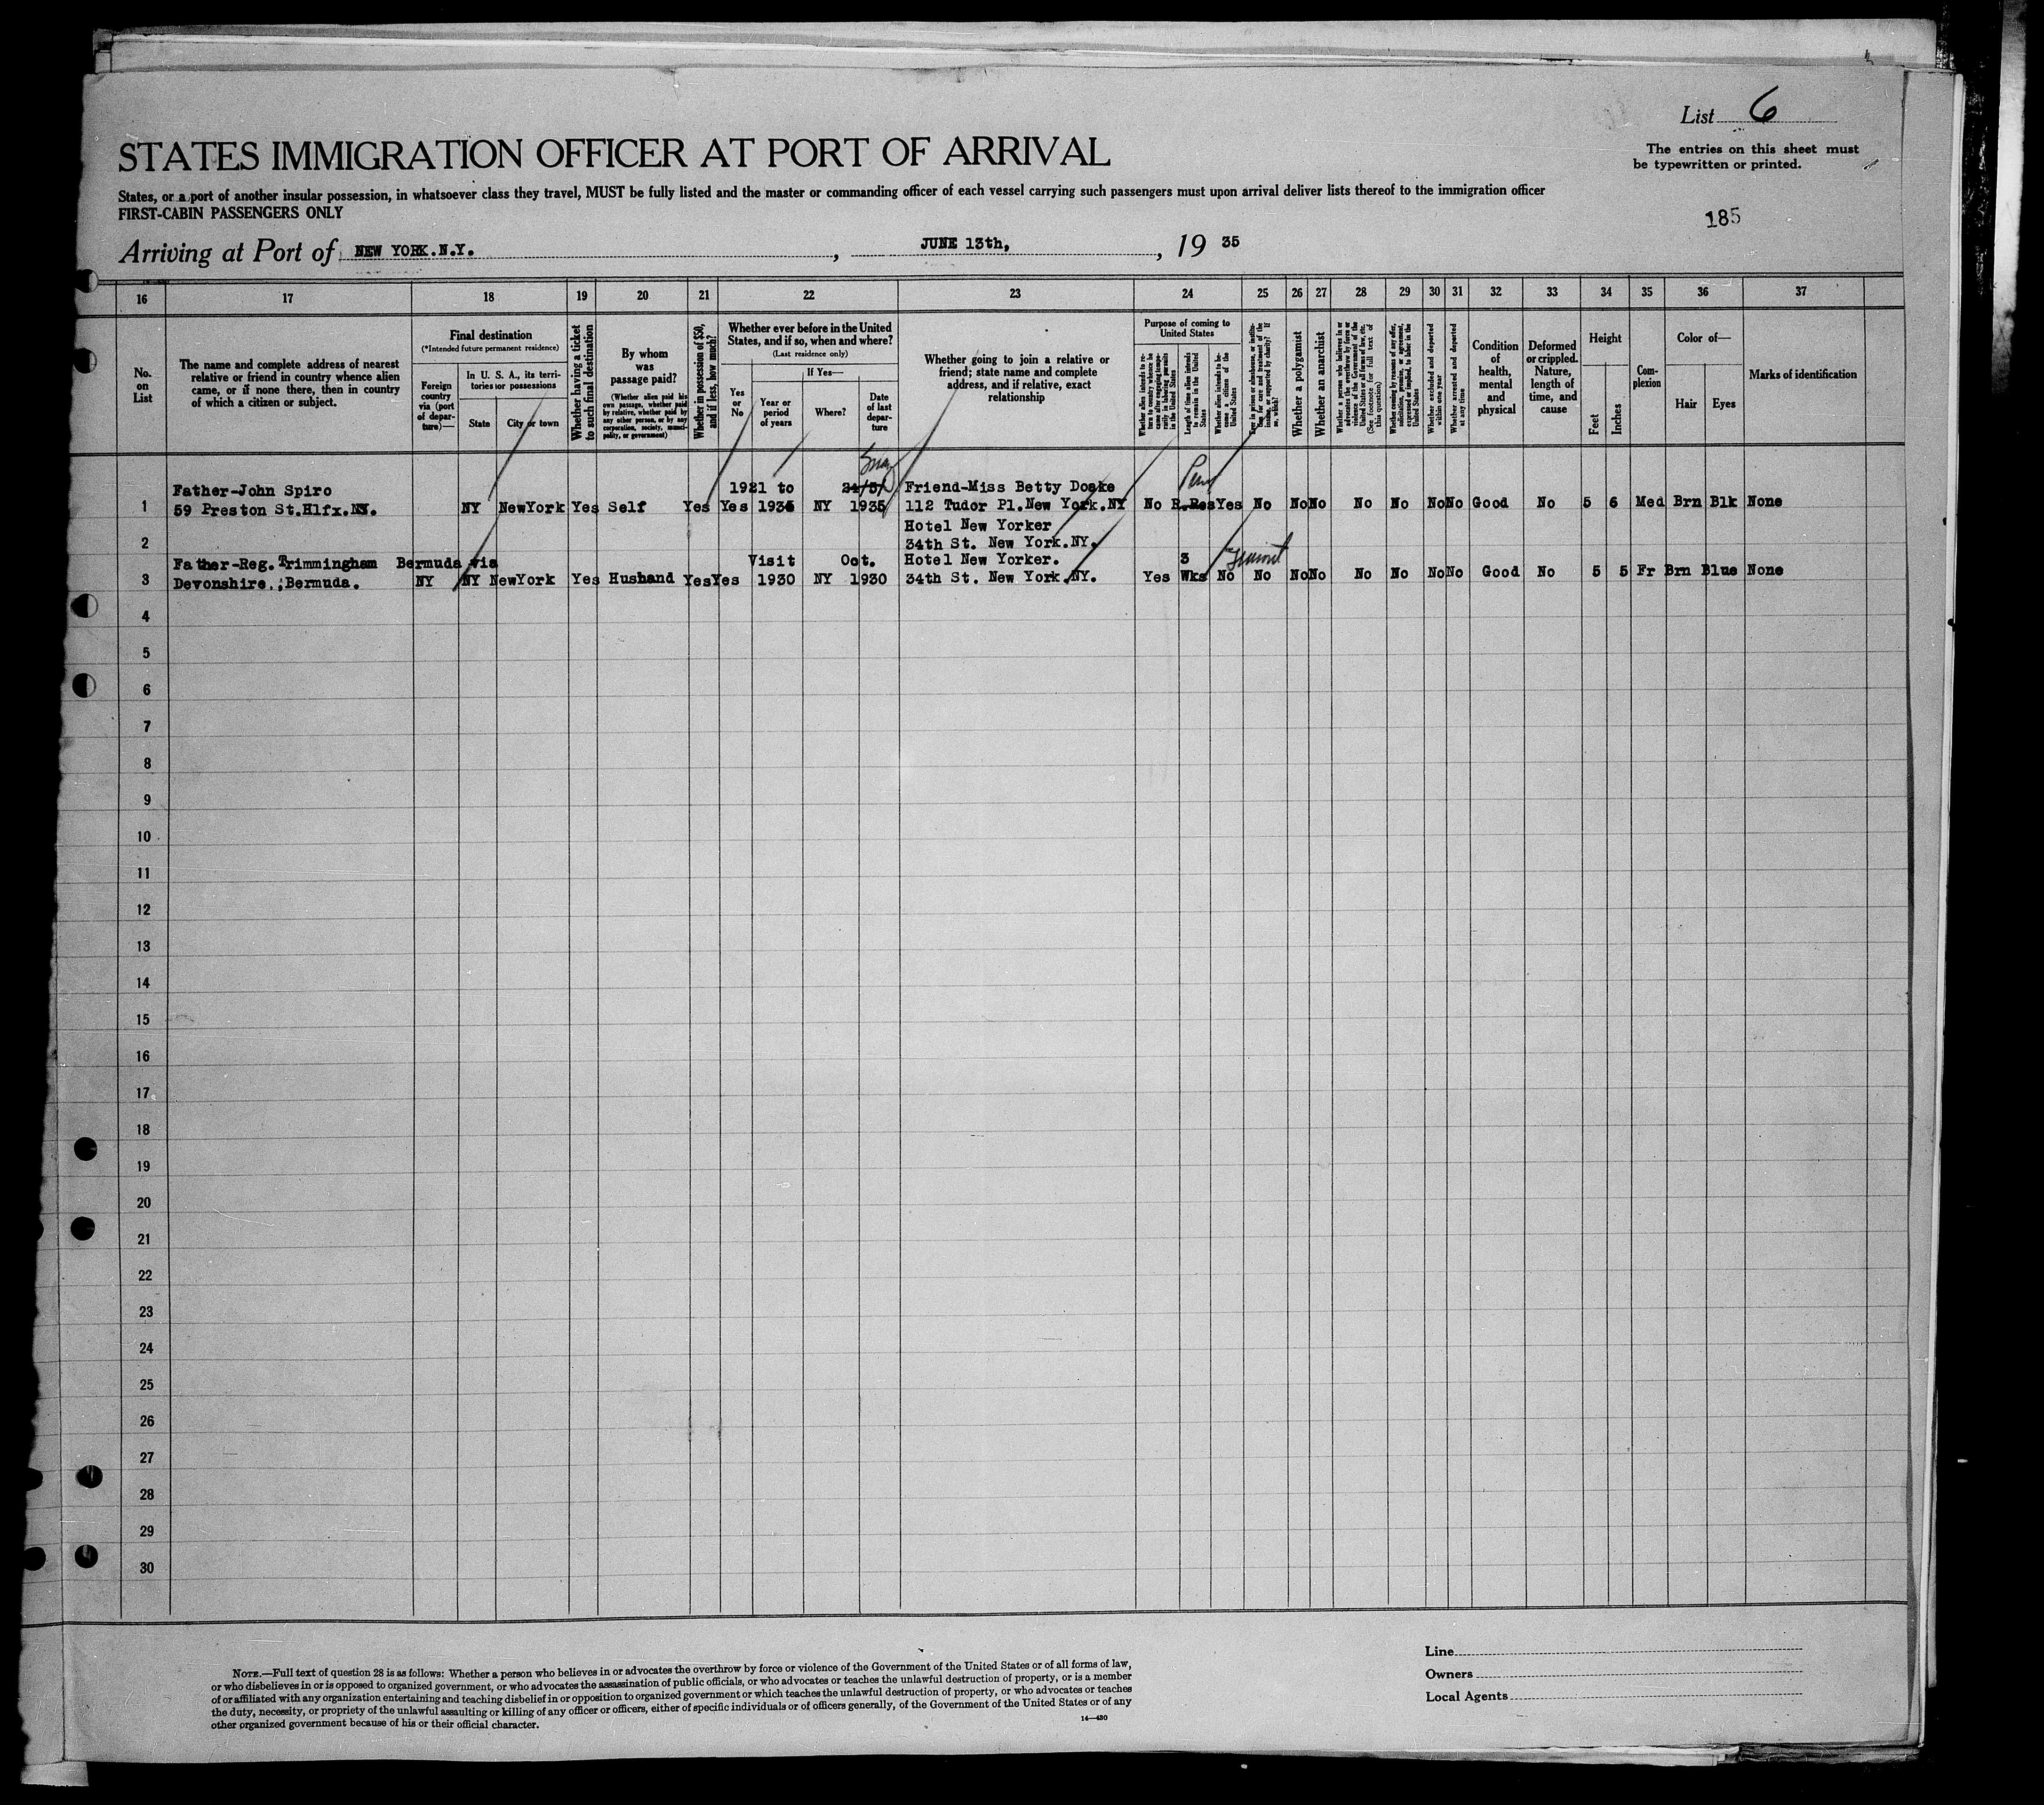 List 6
STATES IMMIGRATION OFFICER AT PORT OF ARRIVAL
The entries on this sheet must
be typewritten or printed.
States, or a port of another insular possession, in whatsoever class they travel, MUST be fully listed and the master or commanding officer of each vessel carrying such passengers must upon arrival deliver lists thereof to the immigration officer
FIRST-CABIN PASSENGERS ONLY
185
Arriving at Port of NEW YORK.N.Y. , JUNE 13th, , 19 35
16 17 18 19 20 21 22 23 24 25 26 27 28 29 30 31 32 33 34 35 36 37
No.
on
List
The name and complete address of nearest
relative or friend in country whence alien
came, or if none there, then in country
of which a citizen or subject.
Final destination
(*Intended future permanent residence)
Foreign
country
via (port
of depar-
ture)—
In U. S. A., its terri-
tories or possessions
State
City or town
Whether having a ticket
to such final destination
By whom
was
passage paid?
(Whether alien paid his
own passage, whether paid
by relative, whether paid by
any other person, or by any
corporation, society, munici-
pality, or government)
Whether in possession of $50,
and if less, how much?
Whether ever before in the United
States, and if so, when and where?
(Last residence only)
Yes
or
No
If Yes—
Year or
period
of years
Where?
Date
of last
depar-
ture
Whether going to join a relative or
friend; state name and complete
address, and if relative, exact
relationship
Purpose of coming to
United States
Whether alien intends to re-
turn to country whence he
came after engaging tempo-
rarily in laboring pursuits
in the United States
Length of time alien intends
to remain in the United
States
Whether alien intends to be-
come a citizen of the
United States
Whether a polygamist
Whether an anarchist
Whether a person who believes in or
advocates the overthrow by force or
violence of the Government of the
United States or all forms of law, etc.
(See footnote for full text of
this question)
Whether coming by reasons of any offer,
solicitation, promise, or agreement,
expressed or implied, to labor in the
United States
Whether excluded and deported
within one year
Whether arrested and deported
at any time
Condition
of
health,
mental
and
physical
Deformed
or crippled.
Nature,
length of
time, and
cause
Height
Feet
Inches
Com-
plexion
Color of—
Hair
Eyes
Marks of identification
Father-John Spiro 1921 to Friend-Miss Betty Doake
1 59 Preston St.Hlfx.NS. NY NewYork Yes Self Yes Yes 1935 NY 1935 112 Tudor Pl.New York.NY No R.Res Yes No No No No No No No Good No 5 6 Med Brn Blk None
Hotel New Yorker
2 34th St. New York.NY.
Father-Reg. Trimmingham Bermuda via Visit Oct. Hotel New Yorker. 3 Transit
3 Devonshire.,Bermuda. NY NY NewYork Yes Husband Yes Yes 1930 NY 1930 34th St. New York.NY. Yes Wks No No No No No No No No Good No 5 5 Fr Brn Blue None
4
5
6
7
8
9
10
11
12
13
14
15
16
17
18
19
20
21
22
23
24
25
26
27
28
29
30
NOTE.—Full text of question 28 is as follows: Whether a person who believes in or advocates the overthrow by force or violence of the Government of the United States or of all forms of law,
or who disbelieves in or is opposed to organized government, or who advocates the assassination of public officials, or who advocates or teaches the unlawful destruction of property, or is a member
of or affiliated with any organization entertaining and teaching disbelief in or opposition to organized government or which teaches the unlawful destruction of property, or who advocates or teaches
the duty, necessity, or propriety of the unlawful assaulting or killing of any officer or officers, either of specific individuals or of officers generally, of the Government of the United States or of any
other organized government because of his or their official character.
14—430
Line
Owners
Local Agents